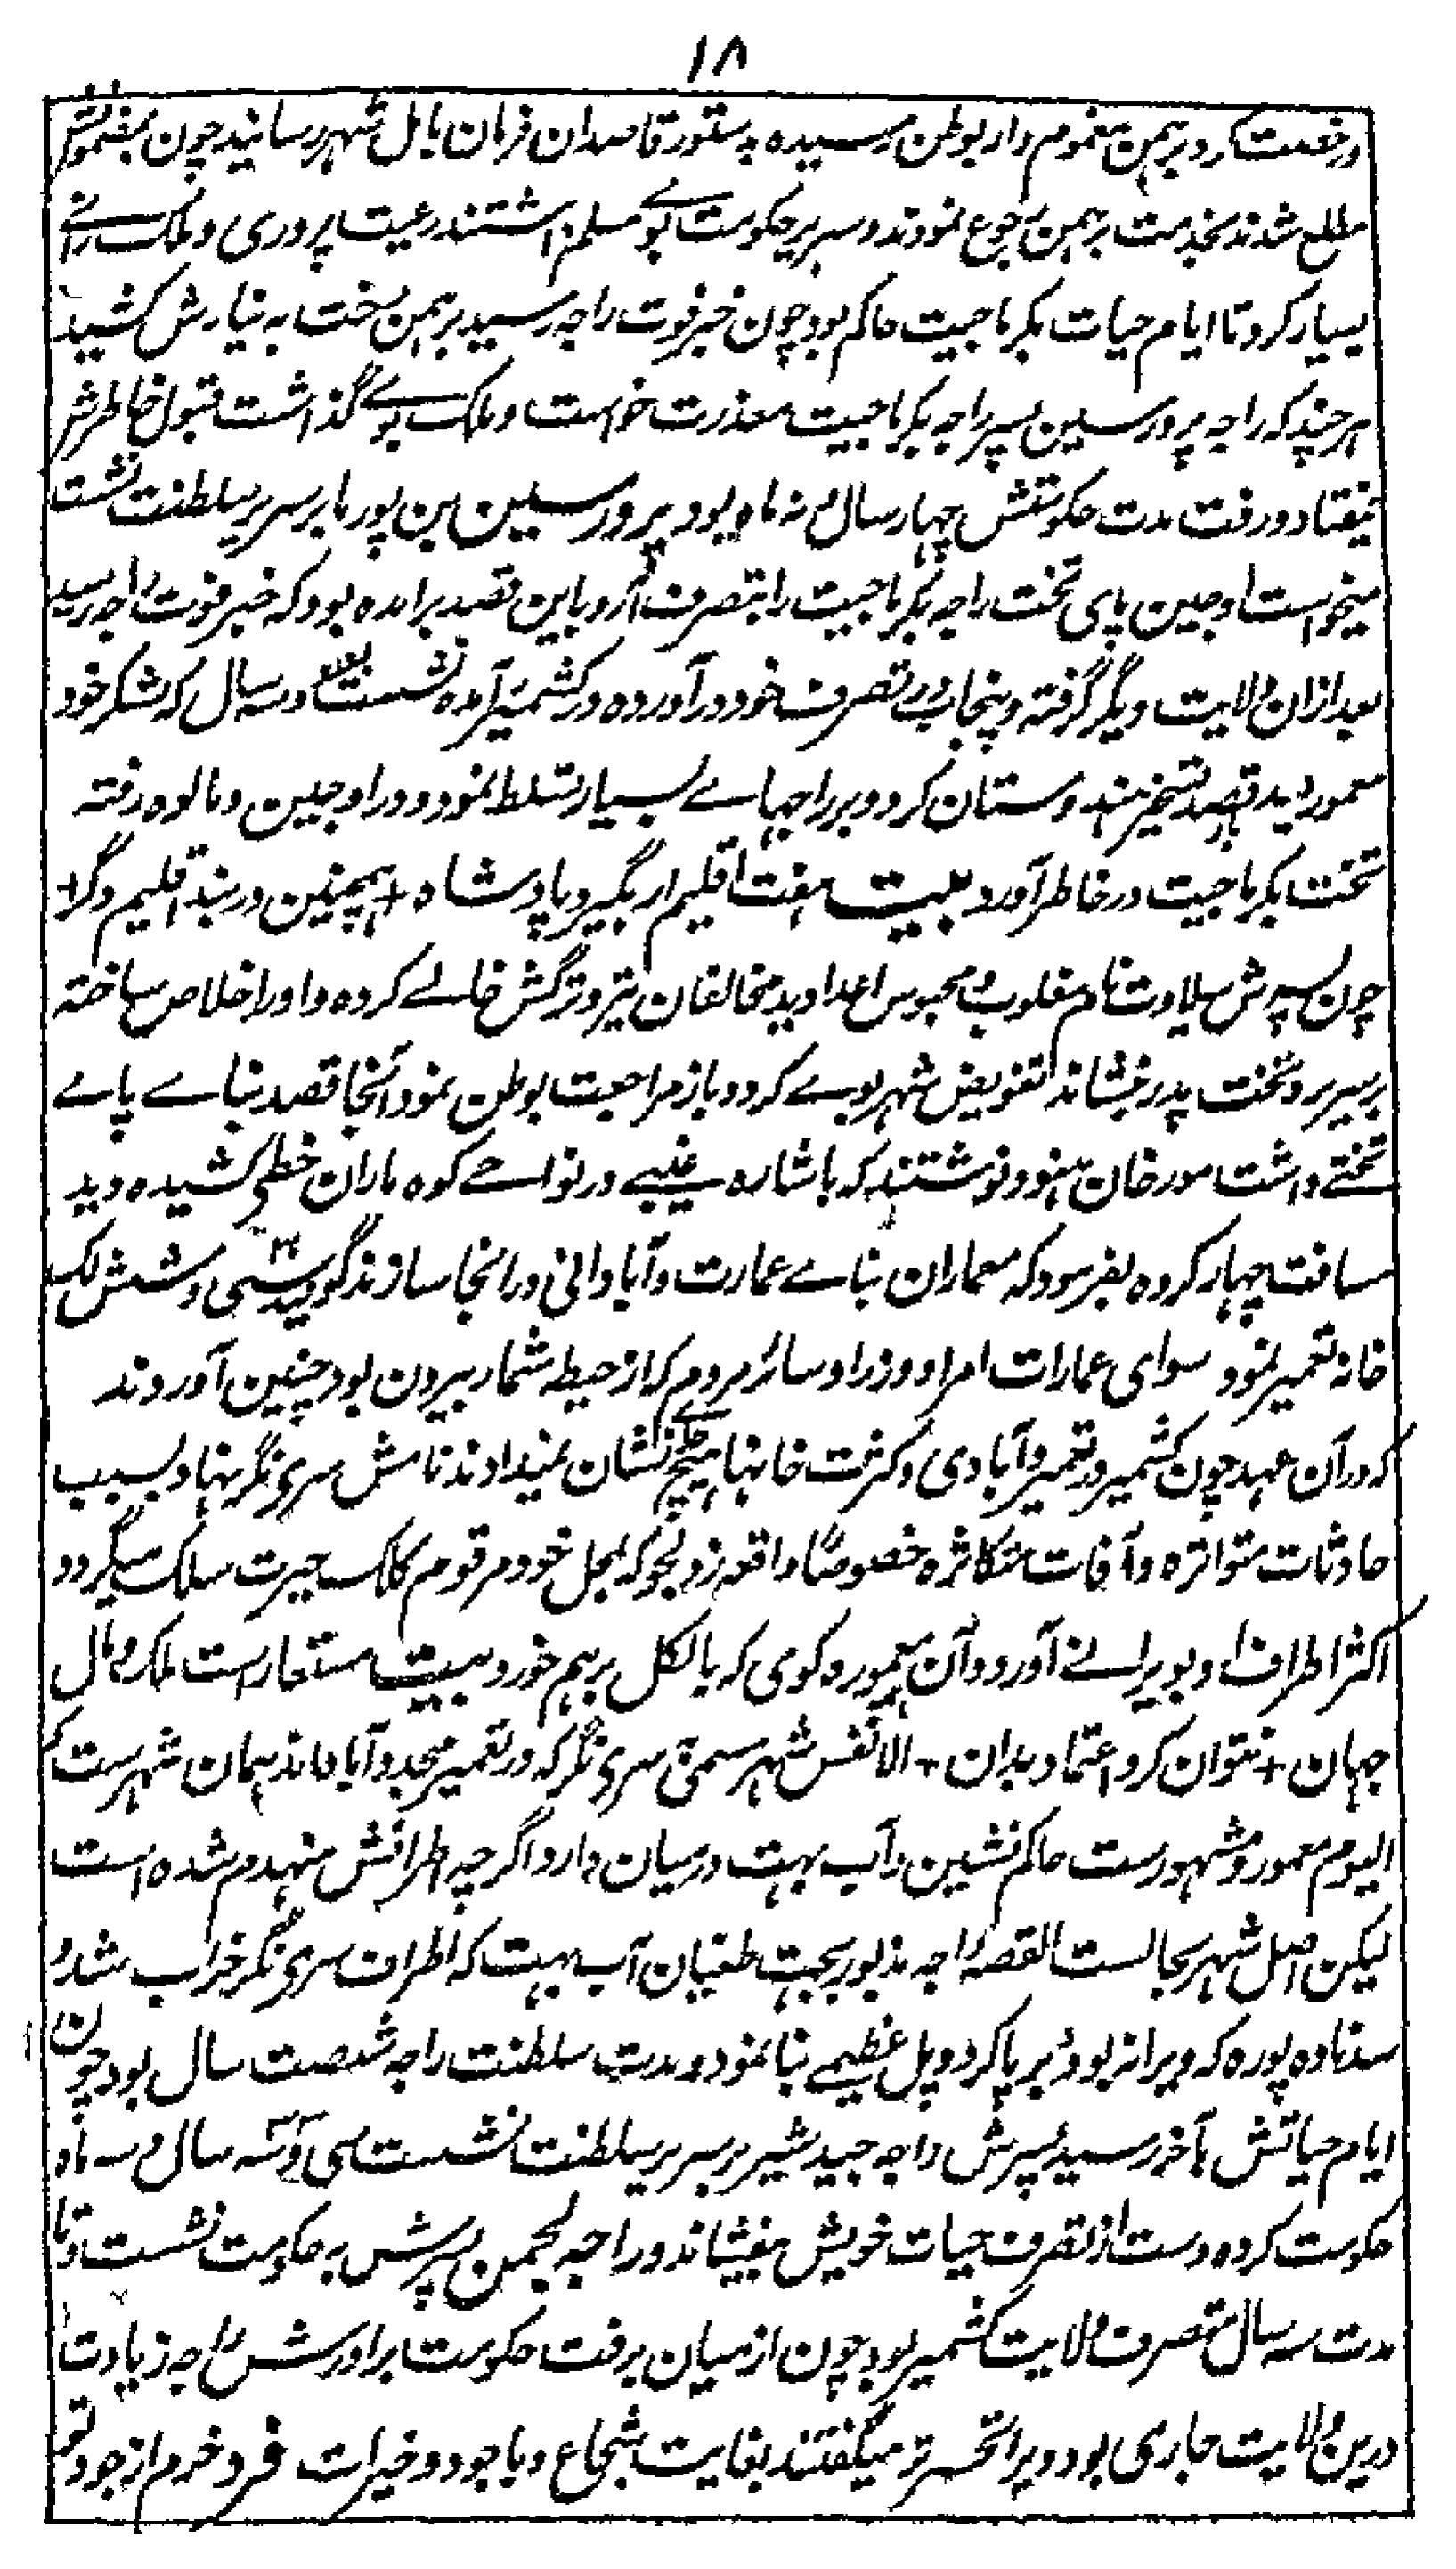 ۱۸
و رخصت کرد برہمن مغموم وار بوطن رسیدہ بدستور قاصدان فرمان باہل شہر رسانید چون بمضمونش
مطلع شدند بخدمت برہمن رجوع نمودند و سریر حکومت بوے مسلم داشتند رعیت پروری و ملک رانے
بسیار کرد تا ایام حیات بکرماجیت حاکم بود چون خبر فوت راجہ رسید برہمن رخت بہ بنارش کشید
ہر چند کہ راجہ پرورسین پسر راجہ بکرماجیت معذرت خواست و ملک بوے گذاشت قبول خاطرش
نیفتاد و رفت مدت حکومتش چہار سال و نہ ماہ بود پرورسین بن پورمابر سریر سلطنت نشست
میخواست اوجین پای تخت راجہ بکرماجیت را بتصرف آرد باین قصد برامدہ بود کہ خبر فوت راجہ رسید
بعد ازان ولایت دیگر گرفتہ و پنجاب در تصرف خود درآوردہ در کشمیر آمدہ نشست بعد دو سہ سال کہ لشکر خود
معمور دید قصد تسخیر ہندوستان کرد و بر راجہاے بسیار تسلط نمود و در اوجین و مالوہ رفتہ
تخت بکرماجیت در خاطر آورد بیت ہفت اقلیم ار بگیرد پادشاہ + ہمچنین در بند اقلیم دگر +
چون پسرش سلاوت نام مغلوب و محبوس اعدا دید مخالفان تیر و ترکش خالے کردہ و او را خلاص ساختہ
بر سریر و تخت پدر بنشاند تفویض شہر بوے کرد و باز مراجعت بوطن نمود آنجا قصد بناے پاے
تختے داشت مورخان ہنود نوشتند کہ باشارہ غیبے در نواحے کوہ ماران خطی کشیدہ دید
مسافت چہار کروہ بفرمود کہ معماران بناے عمارت و آبادانی در انجا سازند گویند سی و شش لک
خانہ تعمیر نمود سوای عمارات امرا و وزرا و سائر مردم کہ از حیطہ شمار بیرون بود چنین آوردند
کہ در آن عہد چون کشمیر در تعمیر و آبادی و کثرت خانہا ہیچ ملکے نشان نمیدادند نامش سری نگر نہاد بسبب
حادثات متواترہ و آفات متکاثرہ خصوصاً واقعہ زولجو کہ بمحل خود مرقوم کلک حیرت سلک میگردد
اکثر اطراف او بویرانے آورد و آن معمورہ کوی کہ بالکل برہم خورد بیت مستعارست ملک و مال
جہان + نتوان کرد اعتماد بدان + الا نفس شہر مسمی سری نگر کہ در تعمیر مجدد آباد ماند ہمان شہرست کہ
الیوم معمور و مشہورست حاکم نشین و آب بہت درمیان دارد اگرچہ اطرافش منہدم شدہ است
لیکن اصل شہر بحالست القصہ راجہ مذبور بجہت طغیان آب بہت کہ اطراف سری نگر خراب شد و
سدناوہ پورہ کہ ویرانہ بود برپا کرد و پل عظیمے بنا نمود و مدت سلطنت راجہ شصت سال بود چون
ایام حیاتش بآخر رسید پسرش راجہ جیدشیر بر سریر سلطنت نشست سی و سہ سال و سہ ماہ
حکومت کردہ دست از تصرف حیات خویش بیفشاند و راجہ لچمن پسرش بہ حکومت نشست و تا
مدت سہ سال متصرف ولایت کشمیر بود چون از میان برفت حکومت برادرش راجہ زیادت
درین ولایت جاری بود ویرا تحسر تر میگفتند بغایت شجاع و باجود و خیرات فرد خرم از جود